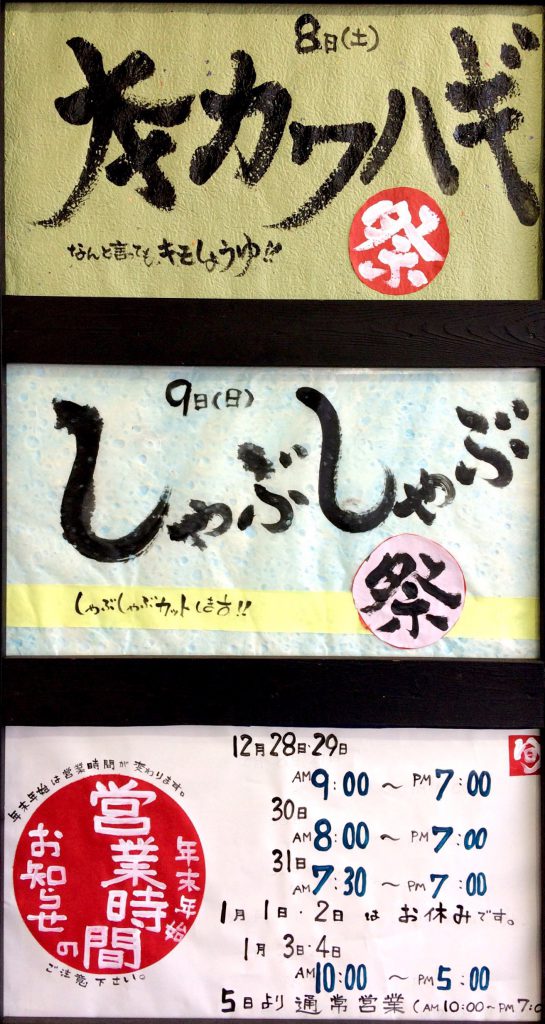 8日(土)
カワハギ
祭
なんと言ってもキモしょうゆ!!
9日(日)
しゃぶしゃぶ
祭
しゃぶしゃぶカットします!!
年末年始は営業時間が変わります。
年末年始
営業時間
お知らせの
ご注意下さい。
旬
12月28日・29日
AM9:00 〜 PM7:00
30日
AM8:00 〜 PM7:00
31日
AM7:30 〜 PM7:00
1月1日・2日はお休みです。
1月3日・4日
AM10:00 〜 PM5:00
5日より通常営業(AM10:00〜PM7:0